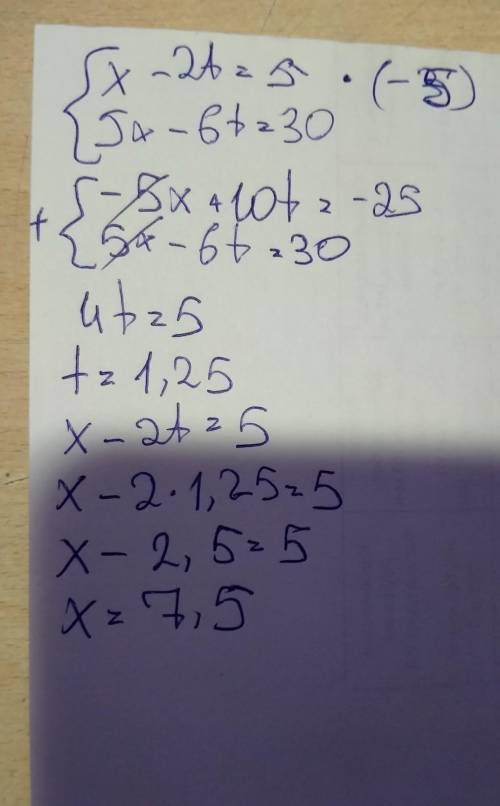 x - 2t = 5 · (-5)
5x - 6t = 30
+ -5x + 10t = -25
5x - 6t = 30
4t = 5
t = 1,25
x - 2t = 5
x - 2 · 1,25 = 5
x - 2,5 = 5
x = 7,5